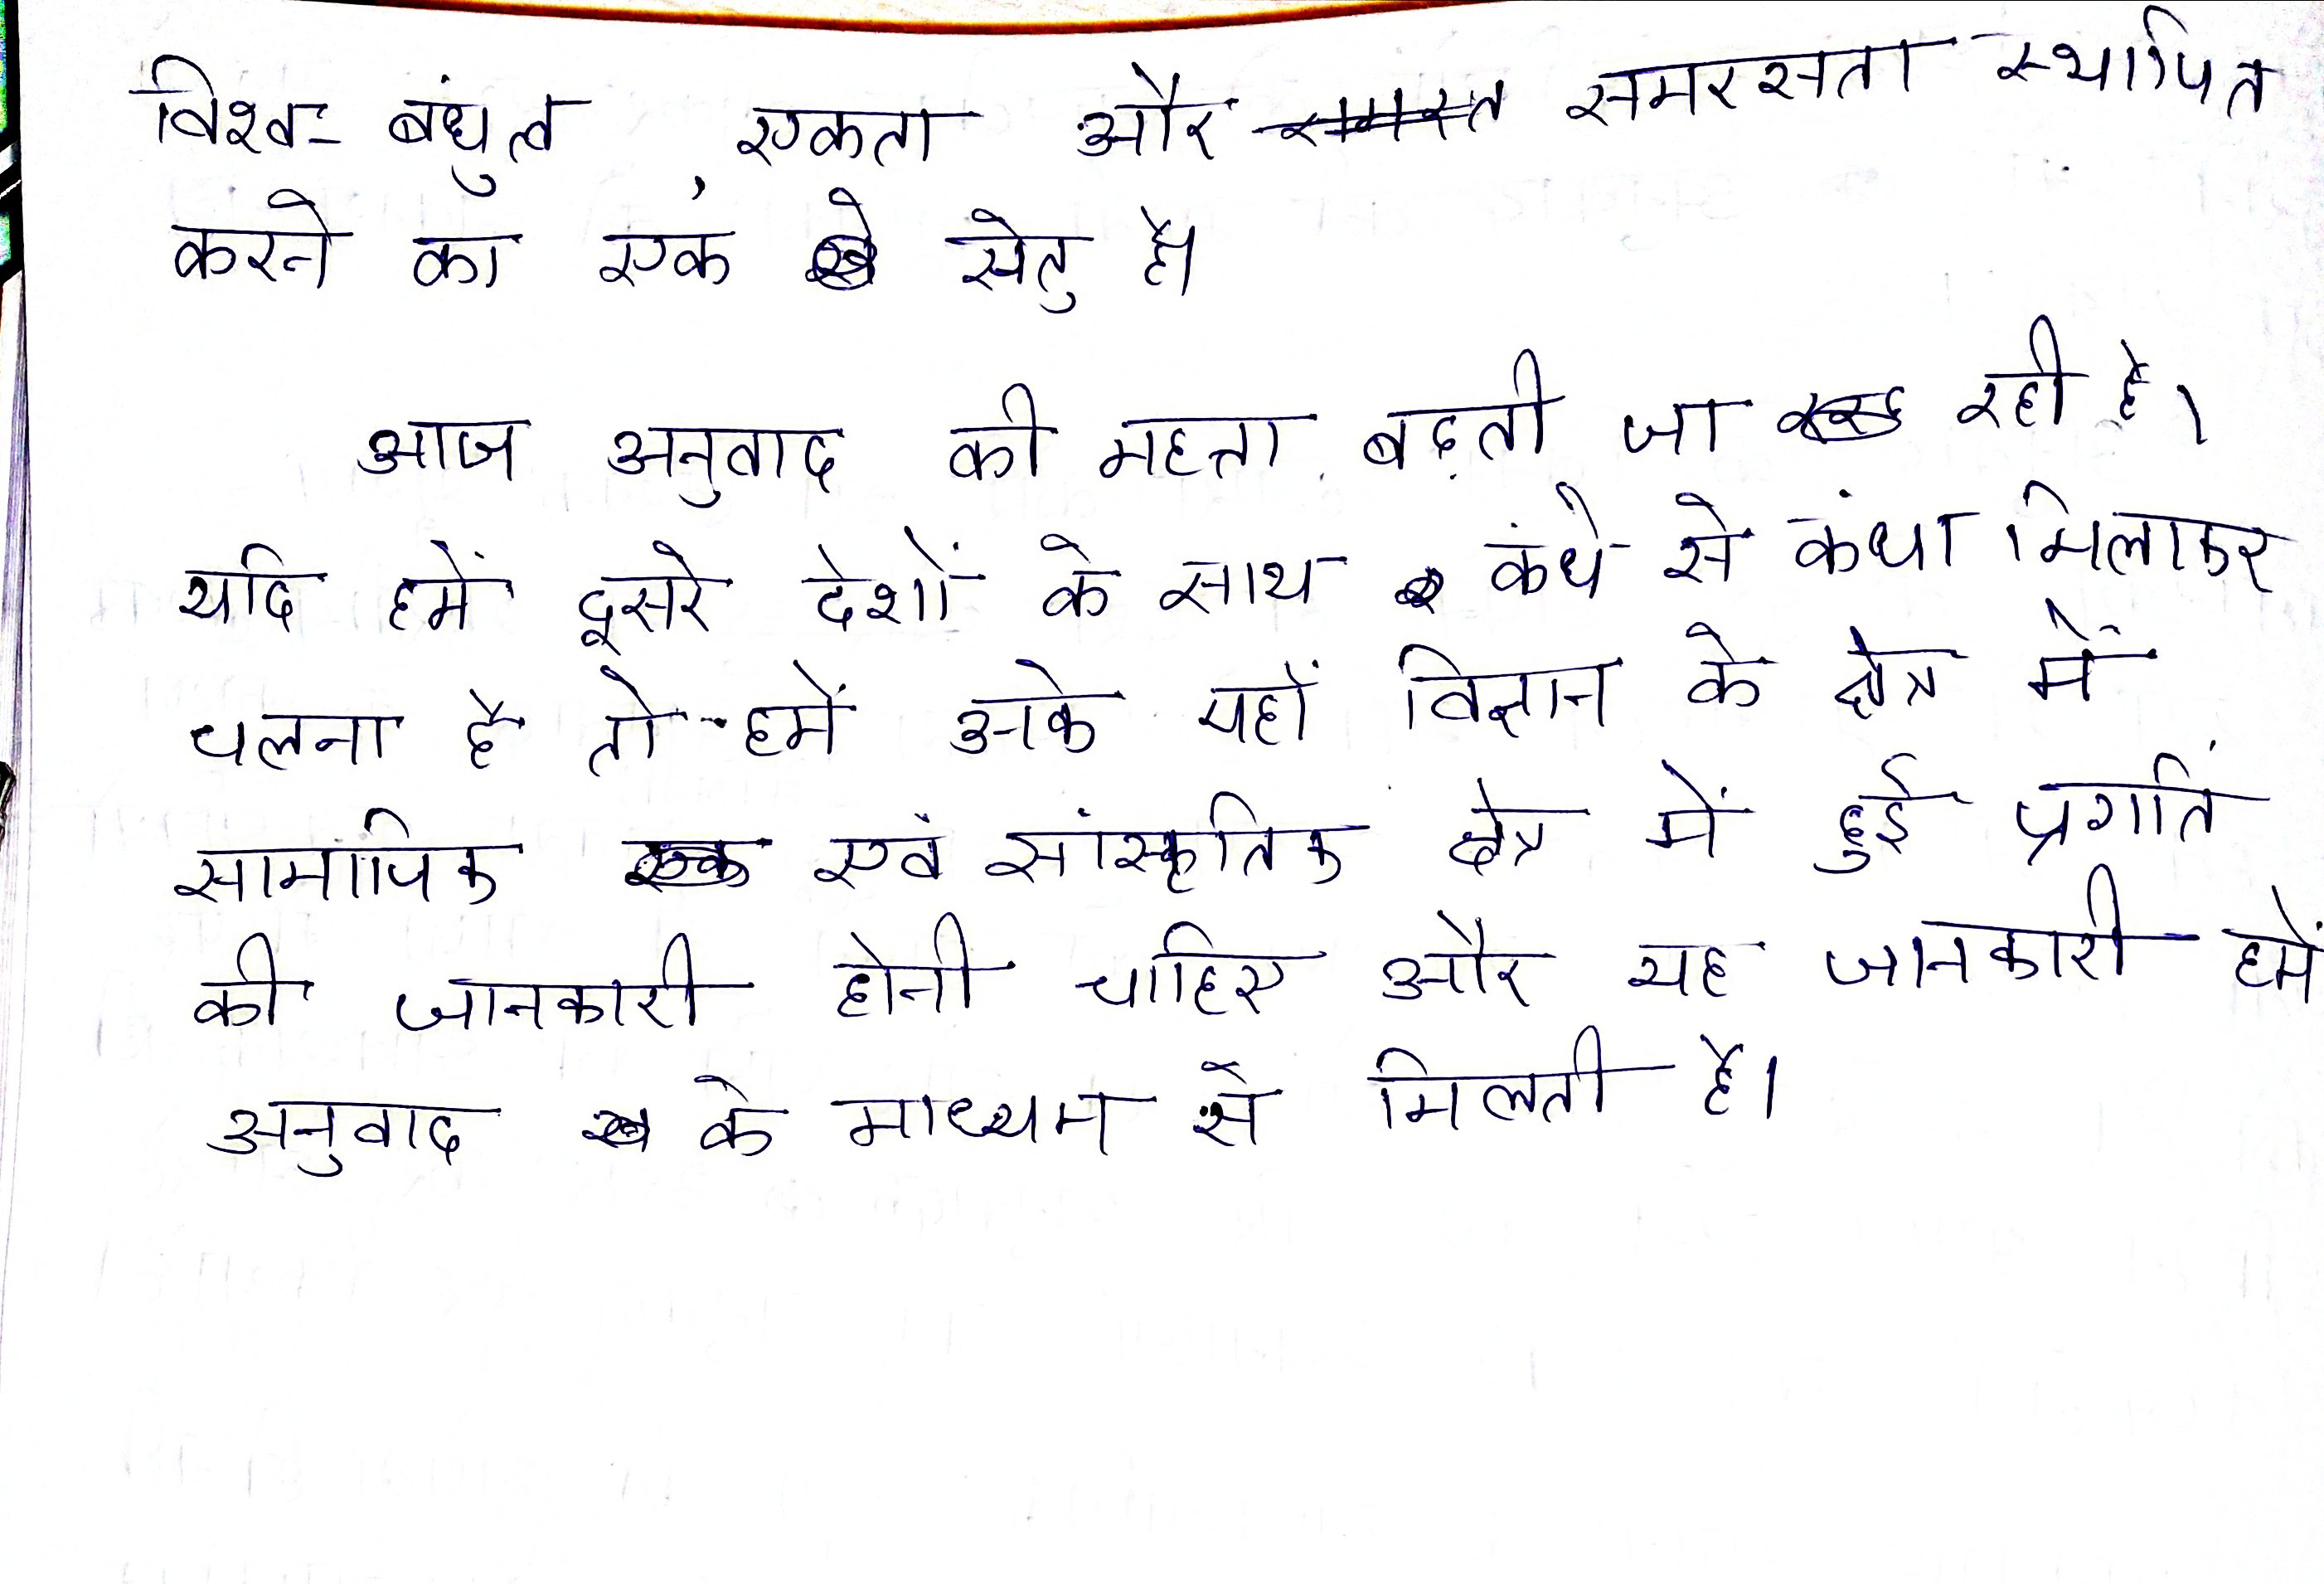 विश्व-बंधुत्व, एकता और समरसता स्थापित
करने का एक सेतु है।
आज अनुवाद की महत्ता बढ़ती जा रही है।
यदि हमें दूसरे देशों के साथ कंधे से कंधा मिलाकर
चलना है तो हमें अके यहाँ विज्ञान के क्षेत्र में
सामाजिक एवं सांस्कृतिक क्षेत्र में हुई प्रगति
की जानकारी होनी चाहिए और यह जानकारी हमें
अनुवाद के माध्यम से मिलती है।